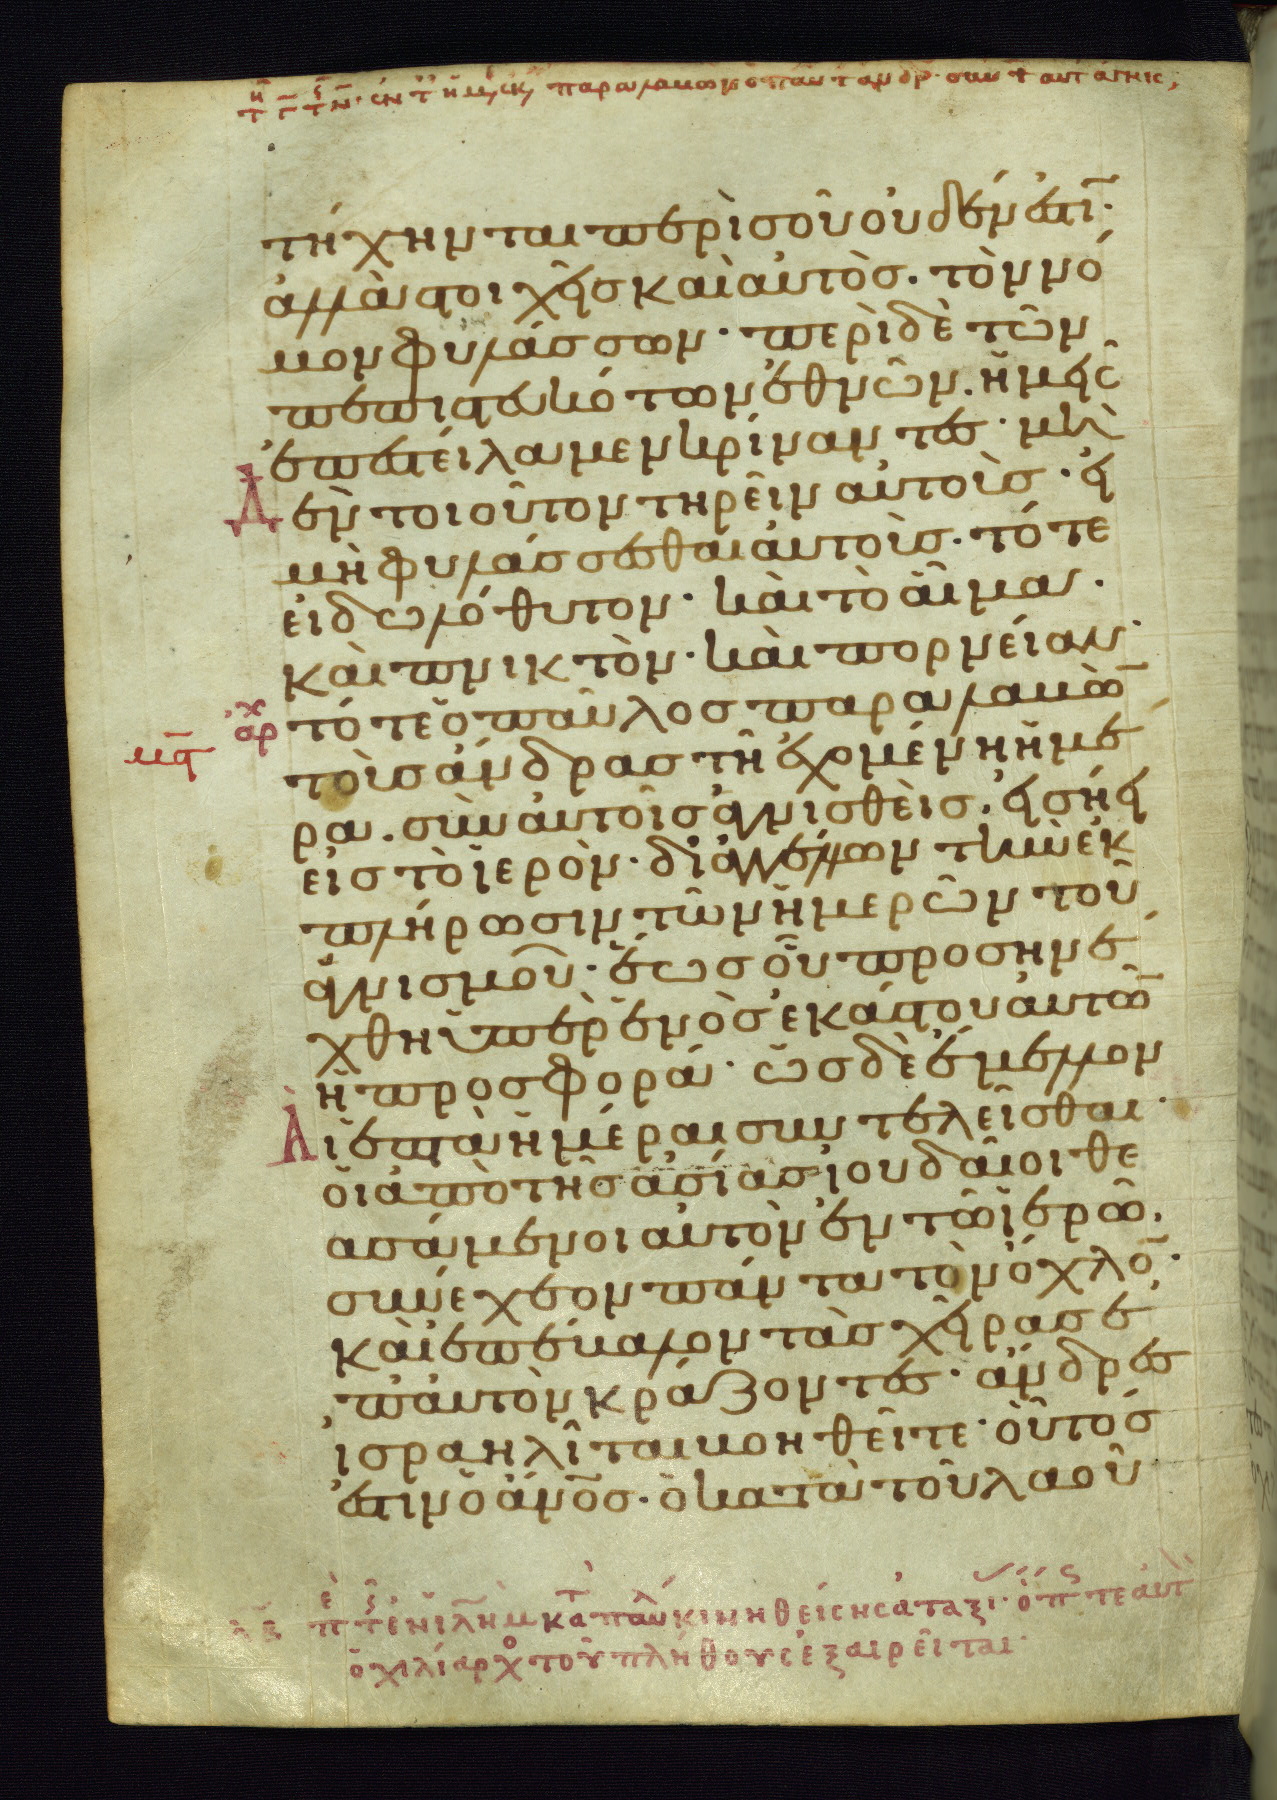 παραλαβὼν ὁ παῦ
τήχηνται περὶ σοῦ οὐδέν ἐστι·
ἀλλὰ στοιχεῖς καὶ αὐτὸς· τὸν νό
μον φυλάσσων· περὶ δὲ τῶν
πεπιστευκότων ἐθνῶν· ἡμεῖς
ἐπεστείλαμεν κρίναντες· μη
δὲν τοιοῦτον τηρεῖν αὐτοὺς· εἰ
μὴ φυλάσσεσθαι αὐτοὺς· τό τε
εἰδωλόθυτον· καὶ τὸ αἷμα·
καὶ πνικτὸν· καὶ πορνείαν·
αρχ τότε ὁ παῦλος παραλαβὼ̅
τοὺς ἄνδρας τῇ ἐχομένῃ ἡμέ
ρα· σὺν αὐτοῖς ἁγνισθεὶς· εἰσήει
εἰς τὸ ἱερὸν· διαγγέλλων τὴν ἐκ
πλήρωσιν τῶν ἡμερῶν τοῦ
ἁγνισμοῦ· ἕως οὗ προσηνέ
χθη ὑπὲρ ἑνὸς ἑκάστου αὐτῶ̅
ἡ προσφορά· ὡς δὲ ἔμελλον
αἱ ἑπτὰ ἡμέραι συντελεῖσθαι·
οἱ ἀπὸ τῆς ἀσίας ἰουδαῖοι θε
ασάμενοι αὐτὸν ἐν τῷ ἱερῷ·
συνέχεον πάντα τὸν ὄχλο̅·
καὶ ἐπέβαλον τὰς χεῖρας ἐ
π' αὐτὸν κράζοντες· ἄνδρες
ἰσραηλῖται βοηθεῖτε· οὗτός
ἐστιν ὁ ἄνο̅ς· ὁ κατὰ τοῦ λαοῦ
κινηθείσης ἀταξι·
ὁ χιλίαρχο τοῦ πλήθους ἐξαιρεῖται·